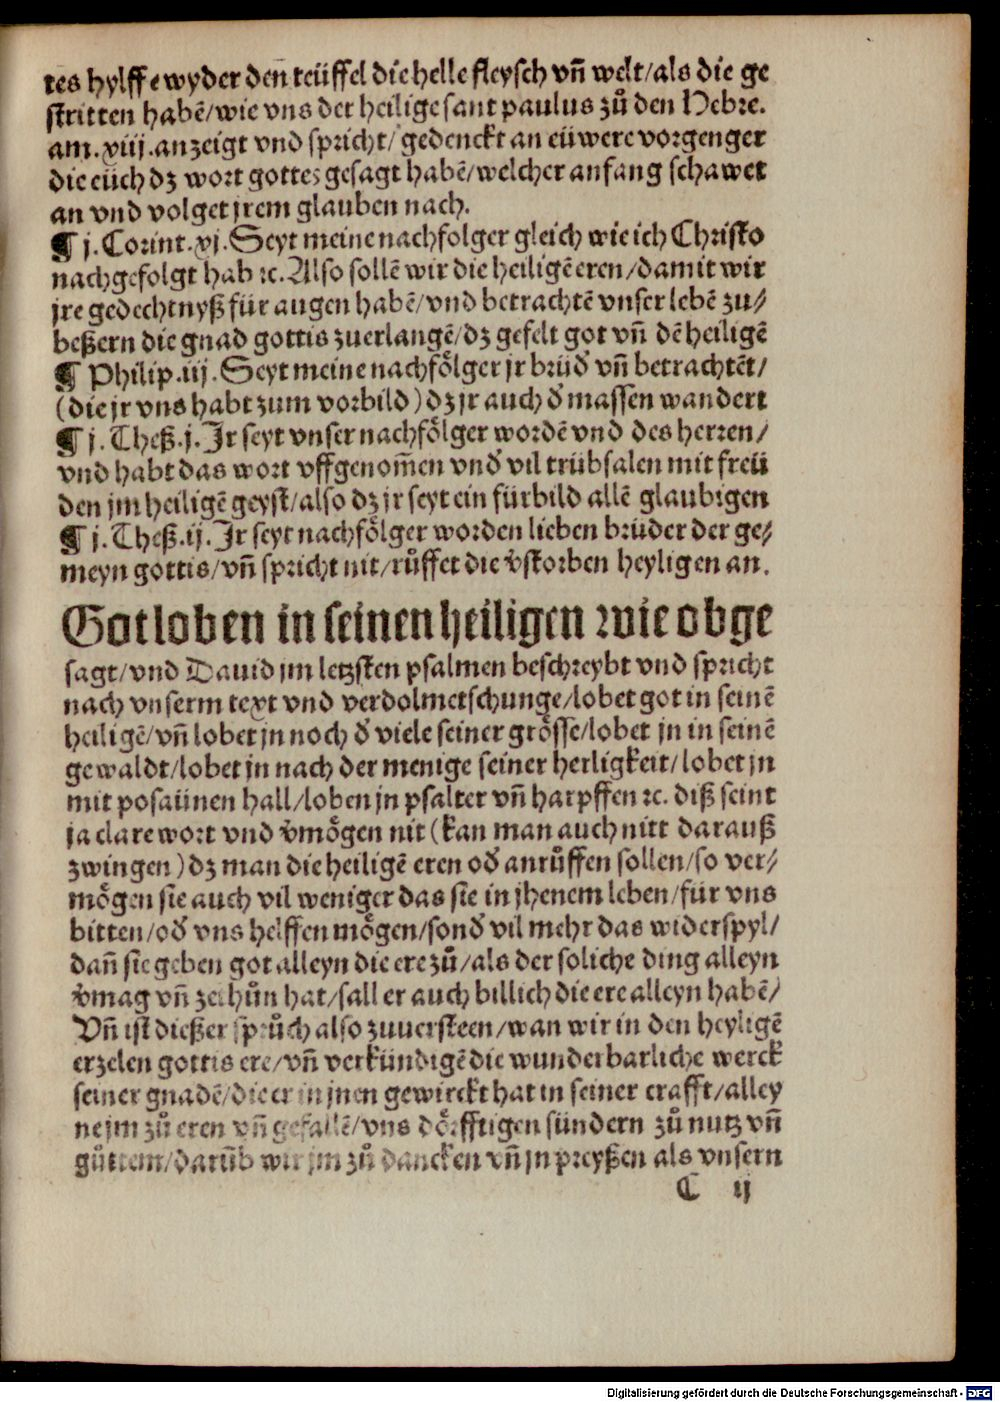 tes hylffe wyder den teüffel die helle fleysch vñ welt/als die ge
stritten habē/wie vns der heilige sant paulus zů den Hebre.
am.xiij.anzeigt vnd spricht/gedenckt an eüwere vorgenger
die eüch dz wort gottes gesagt habē/welcher anfang schawet
an vnd volget jrem glauben nach.
¶ j. Corint.xj. Seyt meine nachfolger gleich wie ich Christo
nachgefolgt hab ꝛc. Also sollē wir die heiligē eren/damit wir
jre gedechtnyß für augen habē/vnd betrachtē vnser lebē zu⸗
beßern die gnad gottis zuerlangē/dz gefelt got vñ dē heiligē
¶ Philip.iij. Seyt meine nachfölger jr brüd̕ vñ betrachtēt/
(die jr vns habt zum vorbild) dz jr auch d̕ massen wandert
¶ j. Theß.j. Jr seyt vnser nachfölger wordē vnd des herren/
vnd habt das wort vffgenom̄en vnd̕ vil trübsalen mit freü
den jm heiligē geyst/also dz jr seyt ein fürbild allē glaubigen
¶ j. Theß.ij. Jr seyt nachfölger worden lieben brüder der ge⸗
meyn gottis/vñ spricht nit/růffet die v̕storben heyligen an.
Got loben in seinen heiligen wie obge
sagt/vnd Dauid jm letzsten psalmen beschreybt vnd spricht
nach vnserm text vnd verdolmetschunge/lobet got in seinē
heiligē/vñ lobet jn noch d̕ viele seiner grösse/lobet jn in seinē
gewaldt/lobet jn nach der menige seiner herligkeit/lobet jn
mit posaünen hall/loben jn psalter vñ harpffen ꝛc. diß seint
ja clare wort vnd v̕mögen nit (kan man auch nitt darauß
zwingen) dz man die heiligē eren od̕ anrůffen sollen/so ver⸗
mögen sie auch vil weniger das sie in jhenem leben/für vns
bitten/od̕ vns helffen mögen/sond̕ vil mehr das widerspyl/
dañ sie geben got alleyn die ere zů/als der soliche ding alleyn
v̕mag vñ zethůn hat/sall er auch billich die ere alleyn habē/
Vñ ist dießer sprůch also zuuersteen/wan wir in den heyligē
erzelen gottis ere/vñ verkündigē die wunderbarliche werck
seiner gnadē/die er in jnen gewirckt hat in seiner crafft/alley
ne jm zů eren vñ gefallē/vns dörfftigen sündern zů nutz vñ
gůttem/darūb wir jm zů dancken vñ jn preyßen als vnsern
C ij
Digitalisierung gefördert durch die Deutsche Forschungsgemeinschaft - DFG